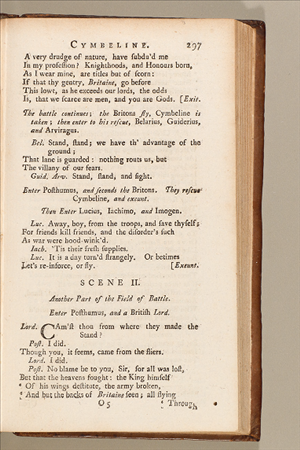 CYMBELINE. 297
A very drudge of nature, have subdu'd me
In my profession? Knighthoods, and Honours born,
As I wear mine, are titles but of scorn:
If that thy gentry, Britaine, go before
This lowt, as he exceeds our lords, the odds
Is, that we scarce are men, and you are Gods. [Exit.
The battle continues; the Britons fly, Cymbeline is
taken; then enter to his rescue, Belarius, Guiderius,
and Arviragus.
Bel. Stand, stand; we have th' advantage of the
ground;
That lane is guarded: nothing routs us, but
The villany of our fears.
Guid. Arv. Stand, stand, and fight.
Enter Posthumus, and seconds the Britons. They rescue
Cymbeline, and exeunt.
Then Enter Lucius, Iachimo, and Imogen.
Luc. Away, boy, from the troops, and save thyself;
For friends kill friends, and the disorder's such
As war were hood-wink'd.
Iach. 'Tis their fresh supplies.
Luc. It is a day turn'd strangely. Or betimes
Let's re-inforce, or fly. [Exeunt.
SCENE II.
Another Part of the Field of Battle.
Enter Posthumus, and a British Lord.
Lord. CAm'st thou from where they made the
Stand?
Post. I did.
Though you, it seems, came from the fliers.
Lord. I did.
Post. No blame be to you, Sir, for all was lost,
But that the heavens fought: the King himself
' Of his wings destitute, the army broken,
' And but the backs of Britaine seen; all flying
O 5 ' Through